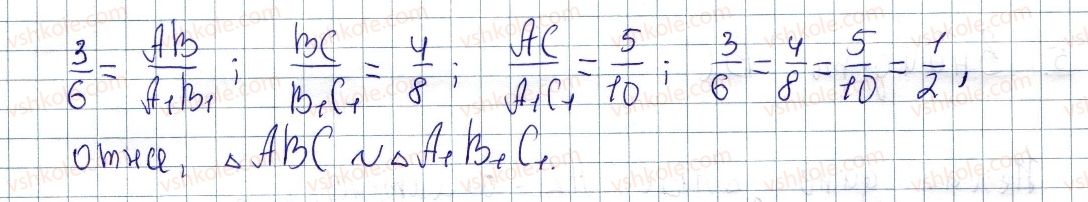 3/6 = AB/A₁B₁ ; BC/B₁C₁ = 4/8 ; AC/A₁C₁ = 5/10 ; 3/6 = 4/8 = 5/10 = 1/2 ,
отже, △ABC ∾ △A₁B₁C₁.